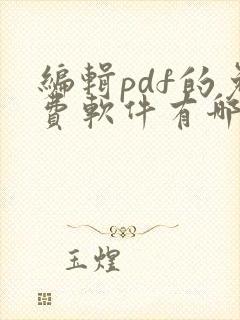 編輯pdf的免
費軟件有哪
玉煌